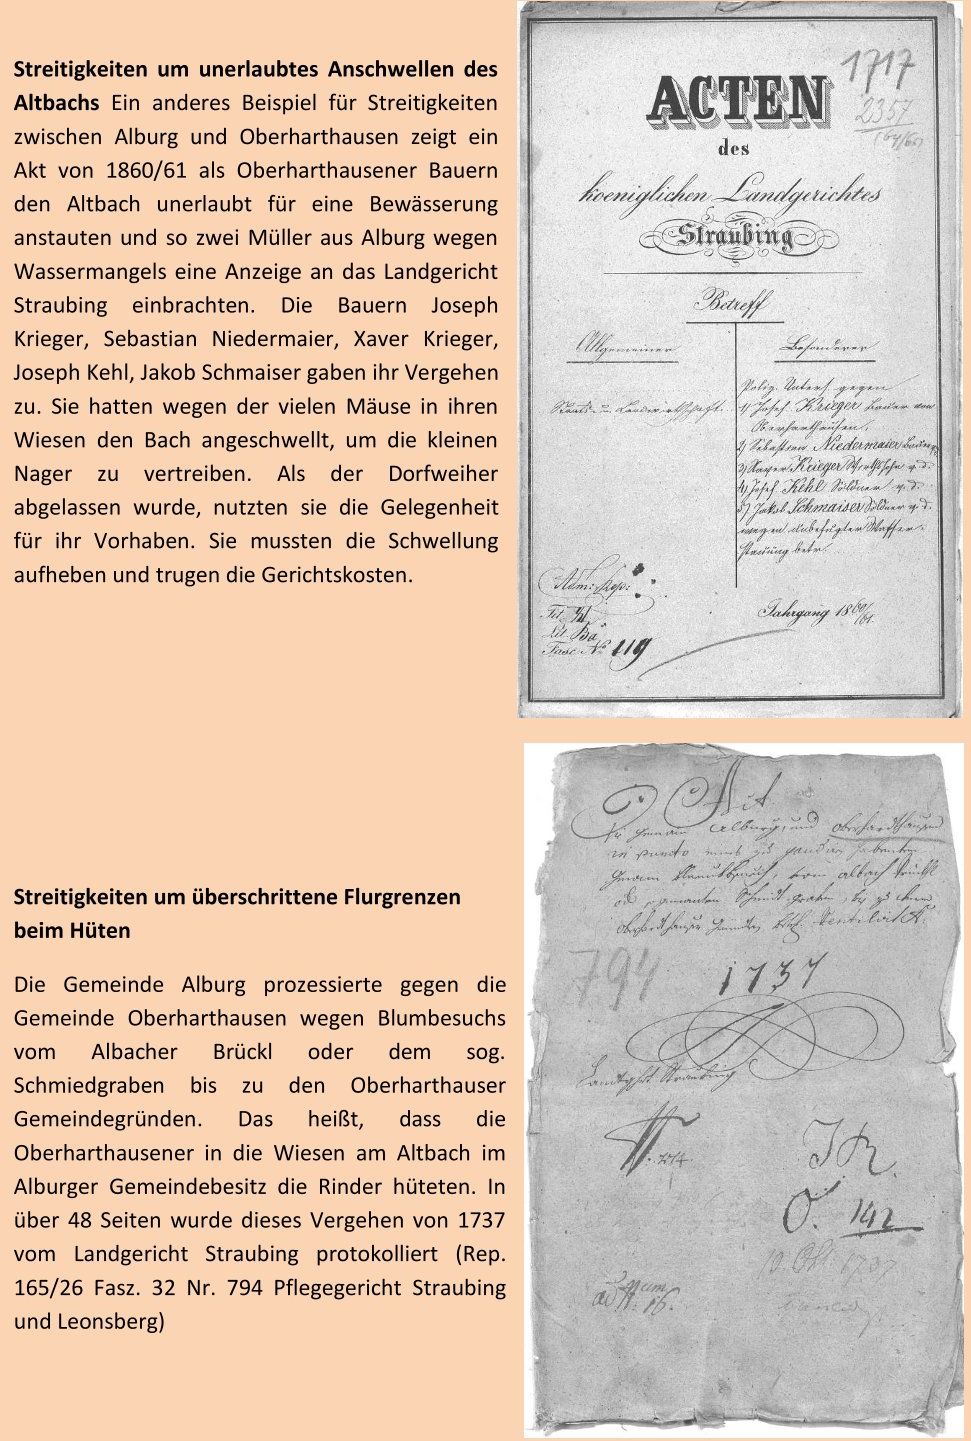 Streitigkeiten um unerlaubtes Anschwellen des
Altbachs Ein anderes Beispiel für Streitigkeiten
zwischen Alburg und Oberharthausen zeigt ein
Akt von 1860/61 als Oberharthausener Bauern
den Altbach unerlaubt für eine Bewässerung
anstauten und so zwei Müller aus Alburg wegen
Wassermangels eine Anzeige an das Landgericht
Straubing einbrachten. Die Bauern Joseph
Krieger, Sebastian Niedermaier, Xaver Krieger,
Joseph Kehl, Jakob Schmaiser gaben ihr Vergehen
zu. Sie hatten wegen der vielen Mäuse in ihren
Wiesen den Bach angeschwellt, um die kleinen
Nager zu vertreiben. Als der Dorfweiher
abgelassen wurde, nutzten sie die Gelegenheit
für ihr Vorhaben. Sie mussten die Schwellung
aufheben und trugen die Gerichtskosten.
1717
2357
ACTEN
des
koeniglichen Landgerichtes
Straubing
Betreff
Allgemeiner
Besonderer
Poliz. Unters. gegen
1) Josef Krieger Bauer von
Oberharthausen,
2) Sebastian Niedermaier Bauer
3) Xaver Krieger v. d.
4) Josef Kehl Söldner v. d.
5) Jakob Schmaiser Söldner v. d.
wegen unbefugter Wasser-
stauung betr.
Jahrgang 1860/61.
Fasc. No 119
Streitigkeiten um überschrittene Flurgrenzen
beim Hüten
Die Gemeinde Alburg prozessierte gegen die
Gemeinde Oberharthausen wegen Blumbesuchs
vom Albacher Brückl oder dem sog.
Schmiedgraben bis zu den Oberharthauser
Gemeindegründen. Das heißt, dass die
Oberharthausener in die Wiesen am Altbach im
Alburger Gemeindebesitz die Rinder hüteten. In
über 48 Seiten wurde dieses Vergehen von 1737
vom Landgericht Straubing protokolliert (Rep.
165/26 Fasz. 32 Nr. 794 Pflegegericht Straubing
und Leonsberg)
Alburg, und Oberhardthausen
794
1737
Straubing
O. 142